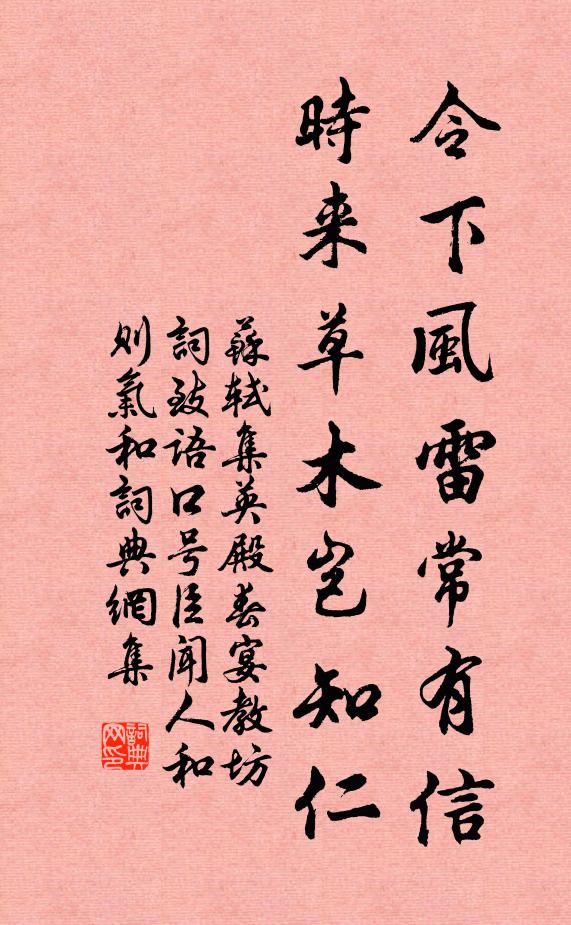 令下風雷常有信
時来草木豈知仁
蘇軾集英殿春宴教坊
詞致語口号臣聞人和
則氣和詞典網集
詞典
网印